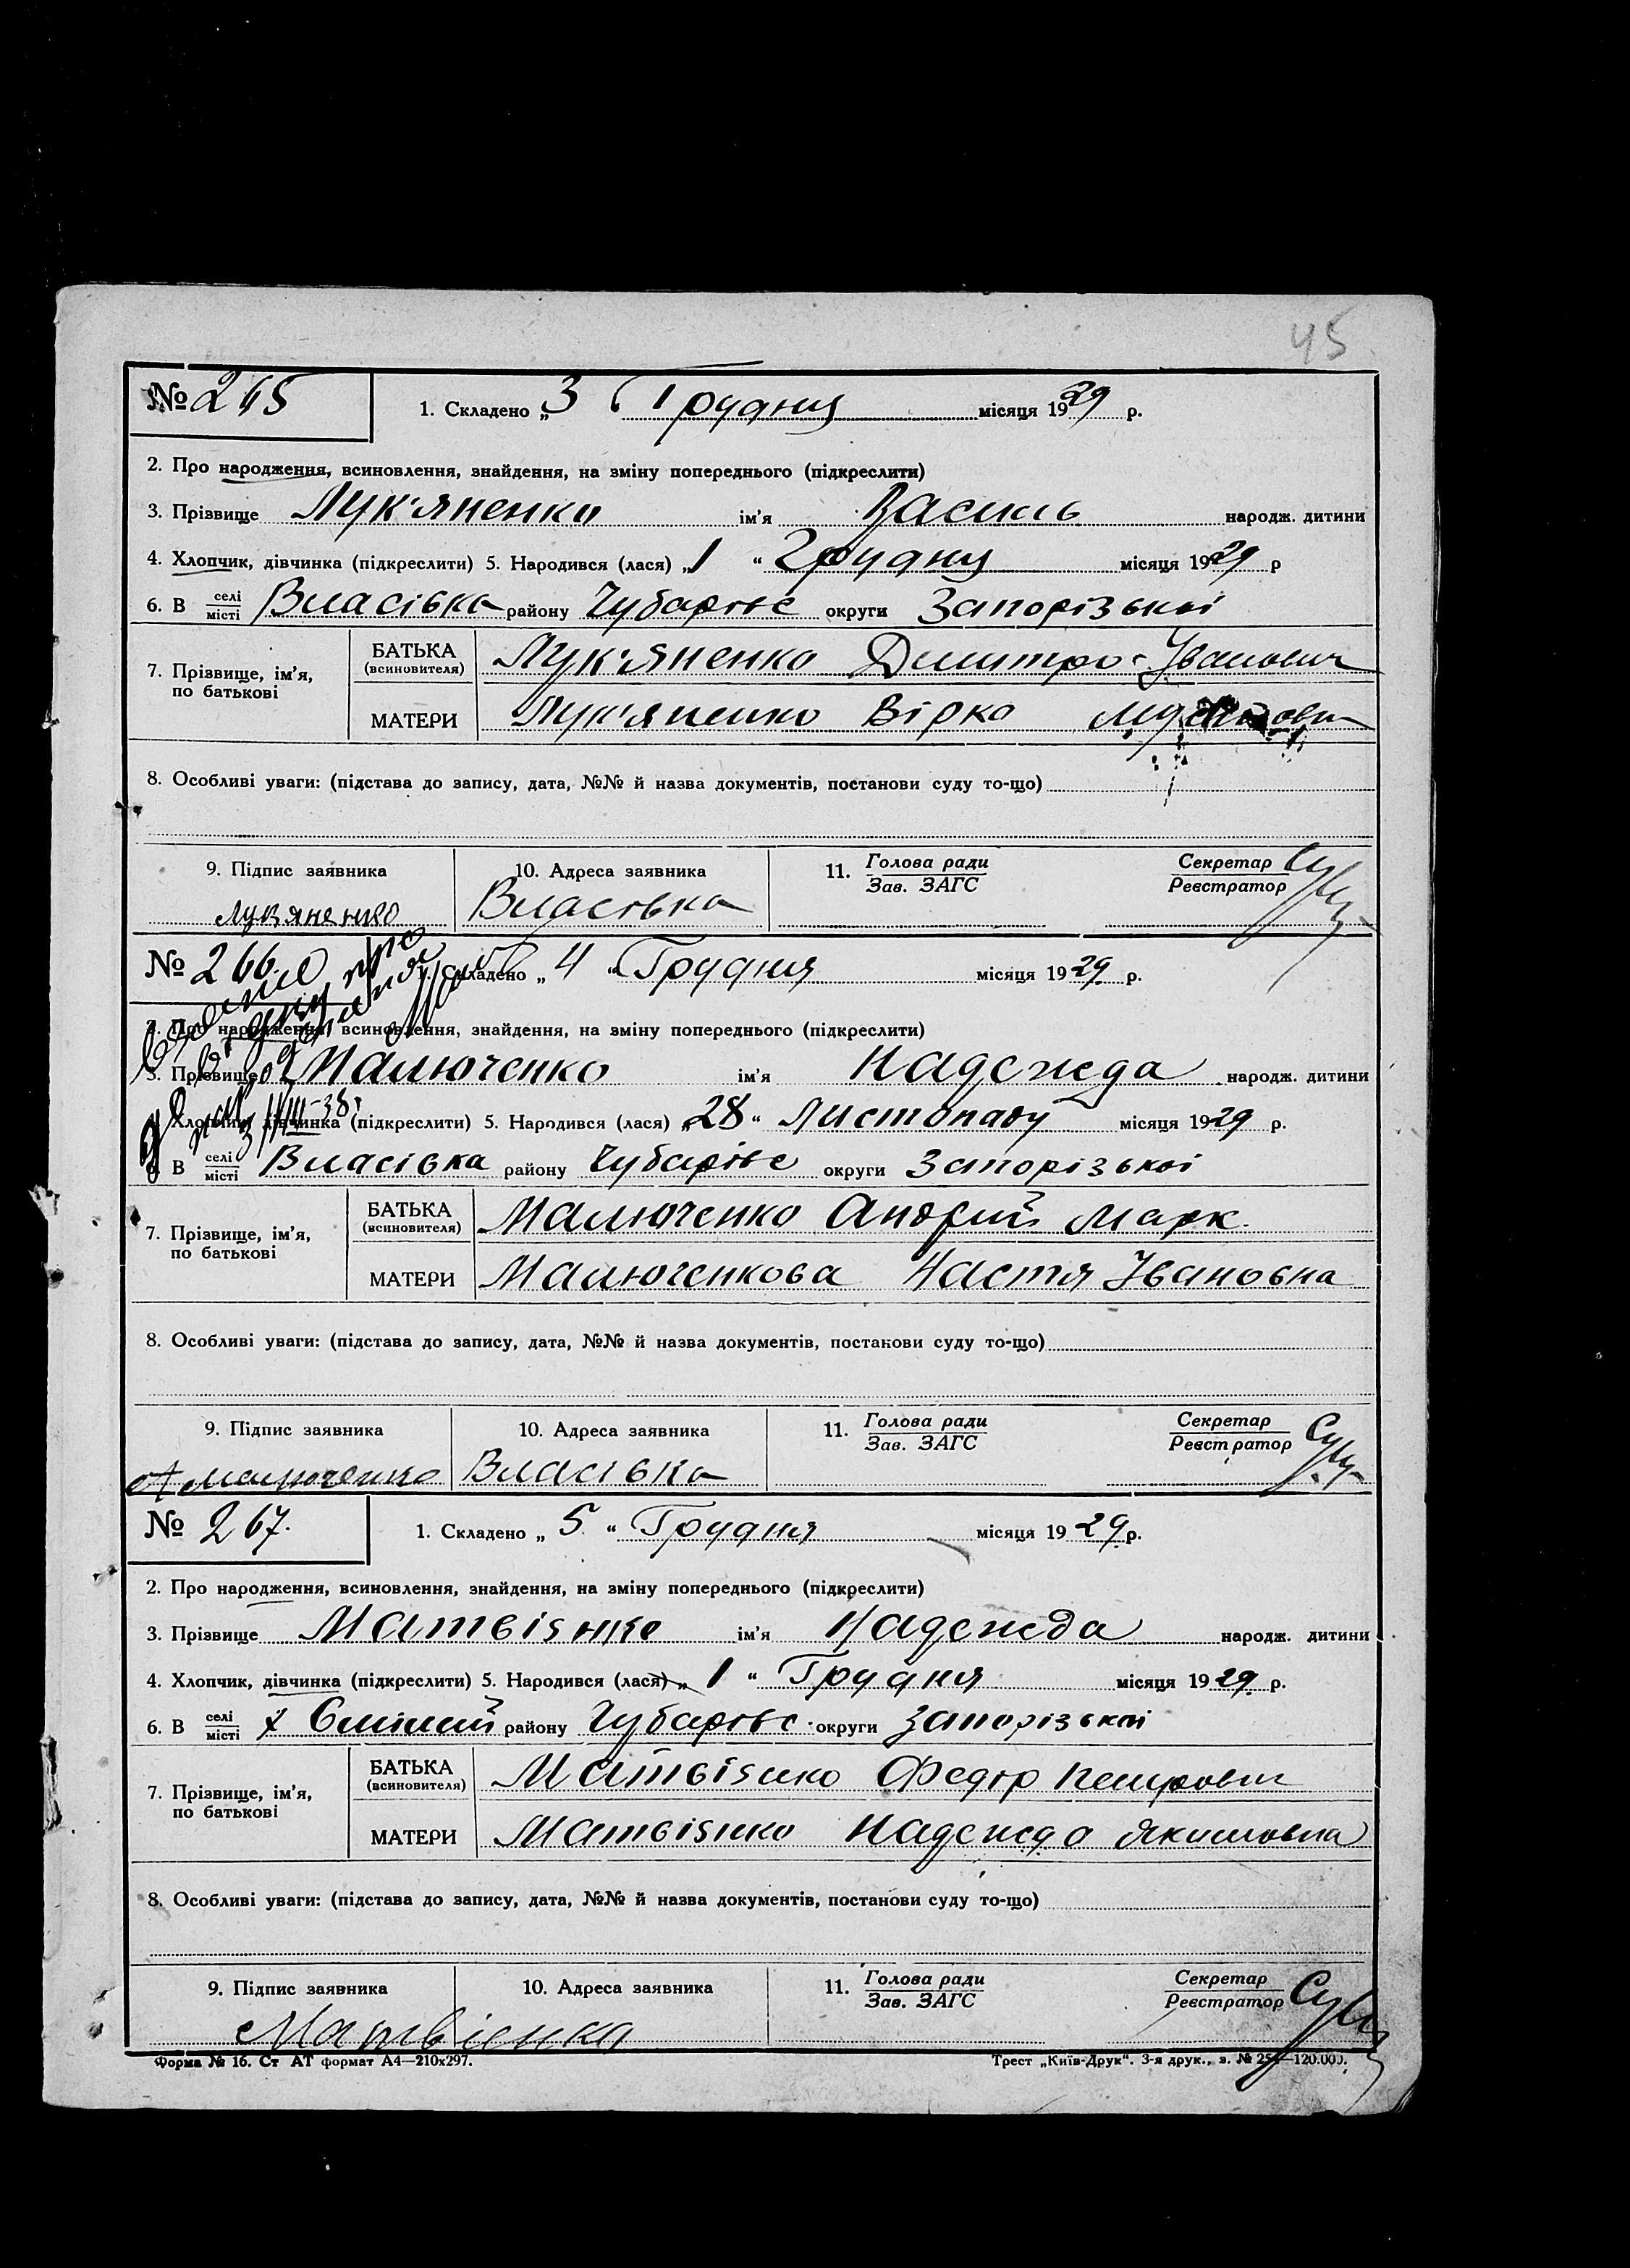 45
№ 265
1. Складено „3 “ Грудня місяця 1929 р.
2. Про народження, всиновлення, знайдення, на зміну попереднього (підкреслити)
3. Прізвище Лук'яненко ім'я Василь народж. дитини
4. Хлопчик, дівчинка (підкреслити) 5. Народився (лася) „1 “ Грудня місяця 1929 р
6. В селі/місті Власівка району Чубарівс округи Запорізької
7. Прізвище, ім'я, по батькові
БАТЬКА (всиновителя) Лук'яненко Дмитро Іванович
МАТЕРИ Лук'яненко Вірка
8. Особливі уваги: (підстава до запису, дата, №№ й назва документів, постанови суду то-що)
9. Підпис заявника 10. Адреса заявника 11. Голова ради/Зав. ЗАГС Секретар/Реєстратор
Лукяненко Власівка
№ 266.
1. Складено „ 4 “ Грудня місяця 1929. р.
2. Про народження, всиновлення, знайдення, на зміну попереднього (підкреслити)
3. Прізвище Малюченко ім'я Надежда народж. дитини
4. Хлопчик, дівчинка (підкреслити) 5. Народився (лася) „28 “ Листопаду місяця 1929 р.
6. В селі/місті Власівка району Чубарівс округи Запорізької
7. Прізвище, ім'я, по батькові
БАТЬКА (всиновителя) Малюченко Андрій Марк.
МАТЕРИ Малюченкова Настя Івановна
8. Особливі уваги: (підстава до запису, дата, №№ й назва документів, постанови суду то-що)
9. Підпис заявника 10. Адреса заявника 11. Голова ради/Зав. ЗАГС Секретар/Реєстратор
А Малюченко Власівка
№ 267.
1. Складено „ 5 “ Грудня місяця 1929. р.
2. Про народження, всиновлення, знайдення, на зміну попереднього (підкреслити)
3. Прізвище Матвієнко ім'я Надежда народж. дитини
4. Хлопчик, дівчинка (підкреслити) 5. Народився (лася) „ 1 “ Грудня місяця 1929. р.
6. В селі/місті району Чубарівс. округи Запорізької
7. Прізвище, ім'я, по батькові
БАТЬКА (всиновителя) Матвієнко Федір Петрович
МАТЕРИ Матвієнко Надежда Якимовна
8. Особливі уваги: (підстава до запису, дата, №№ й назва документів, постанови суду то-що)
9. Підпис заявника 10. Адреса заявника 11. Голова ради/Зав. ЗАГС Секретар/Реєстратор
Матвієнко
Форма № 16. Ст АТ формат А4—210х297. Трест „Київ-Друк“. 3-я друк., з. № 254—120.000.